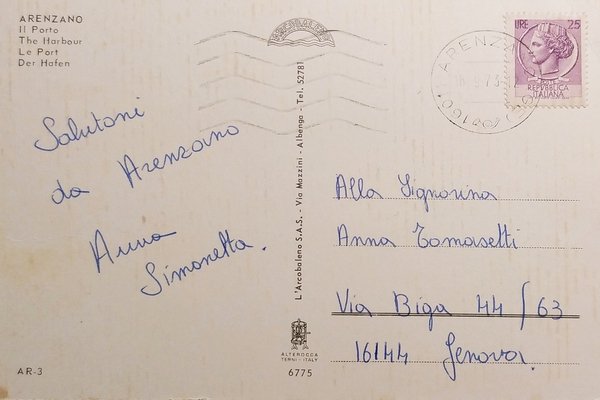 ARENZANO
Il Porto
The Harbour
Le Port
Der Hafen
Salutoni
da Arenzano
Anna
Simonetta.
AR-3
L'Arcobaleno S.A.S. - Via Mazzini - Albenga - Tel. 52781
ALTEROCCA
TERNI - ITALY
6775
LIRE 25
REPVBBLICA
ITALIANA
ARENZA
Alla Signorina
Anna Tomasetti
Via Biga 44/63
16144 Genova.